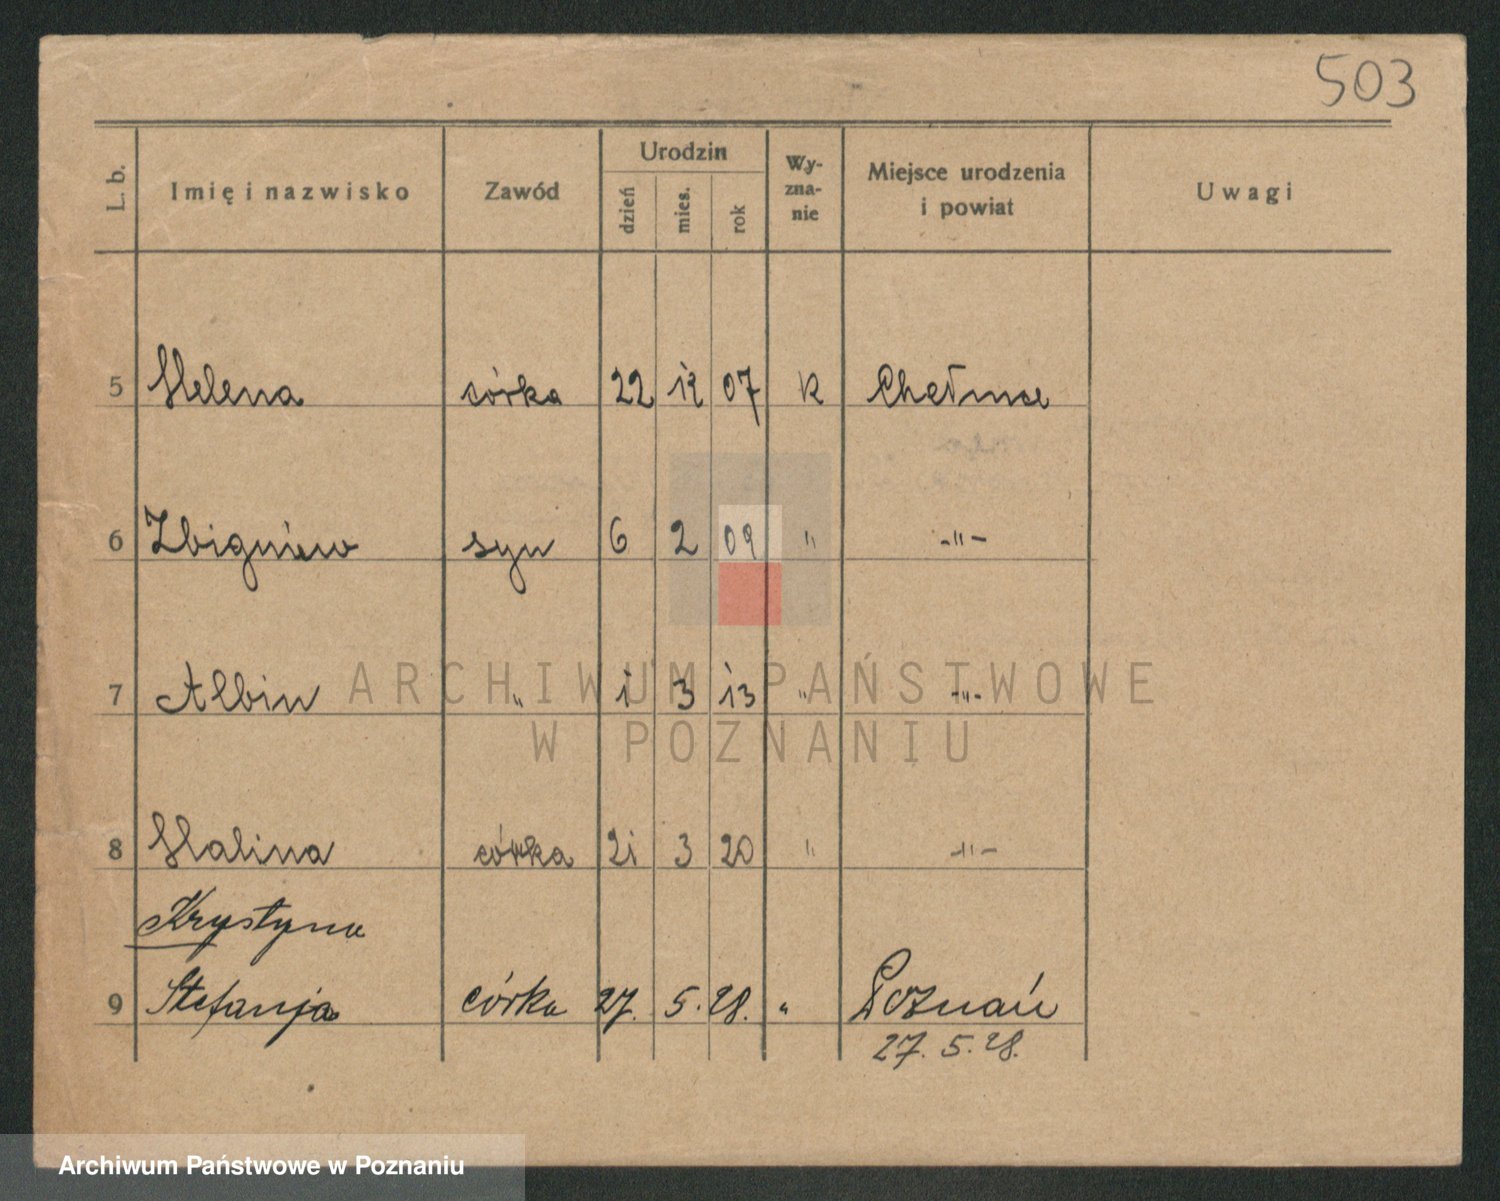 503
L. b. Imię i nazwisko Zawód Urodzin dzień mies. rok Wy-zna-nie Miejsce urodzenia i powiat Uwagi
5 Helena córka 22 12 07 K Chełmce
6 Zbigniew syn 6 2 09 " -"-
7 Albin " 1 3 13 " -"-
8 Halina córka 21 3 20 " -"-
Krystyna
9 Stefanja córka 27. 5. 28. " Poznań
27. 5. 28.
ARCHIWUM PAŃSTWOWE
W POZNANIU
Archiwum Państwowe w Poznaniu